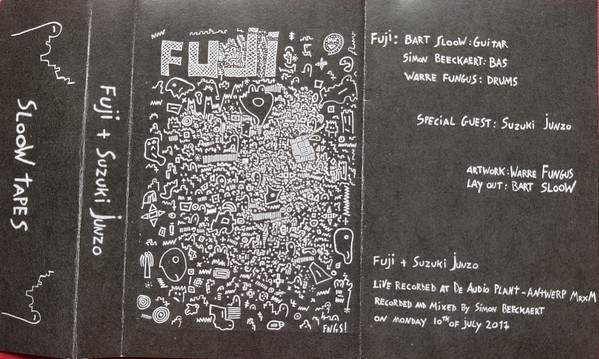 SLOOW TAPES
Fuji + Suzuki Junzo
FUJI
FNGS!
Fuji: BART SLOOW: GUITAR
SIMON BEECKAERT: BAS
WARRE FUNGUS: DRUMS
SPECIAL GUEST: SUZUKI JUNZO
ARTWORK: WARRE FUNGUS
LAY OUT: BART SLOOW
Fuji + Suzuki Junzo
LIVE RECORDED AT DE AUDIO PLANT - ANTWERP MRXM
RECORDED AND MIXED BY SIMON BEECKAERT
ON MONDAY 10TH OF JULY 2017